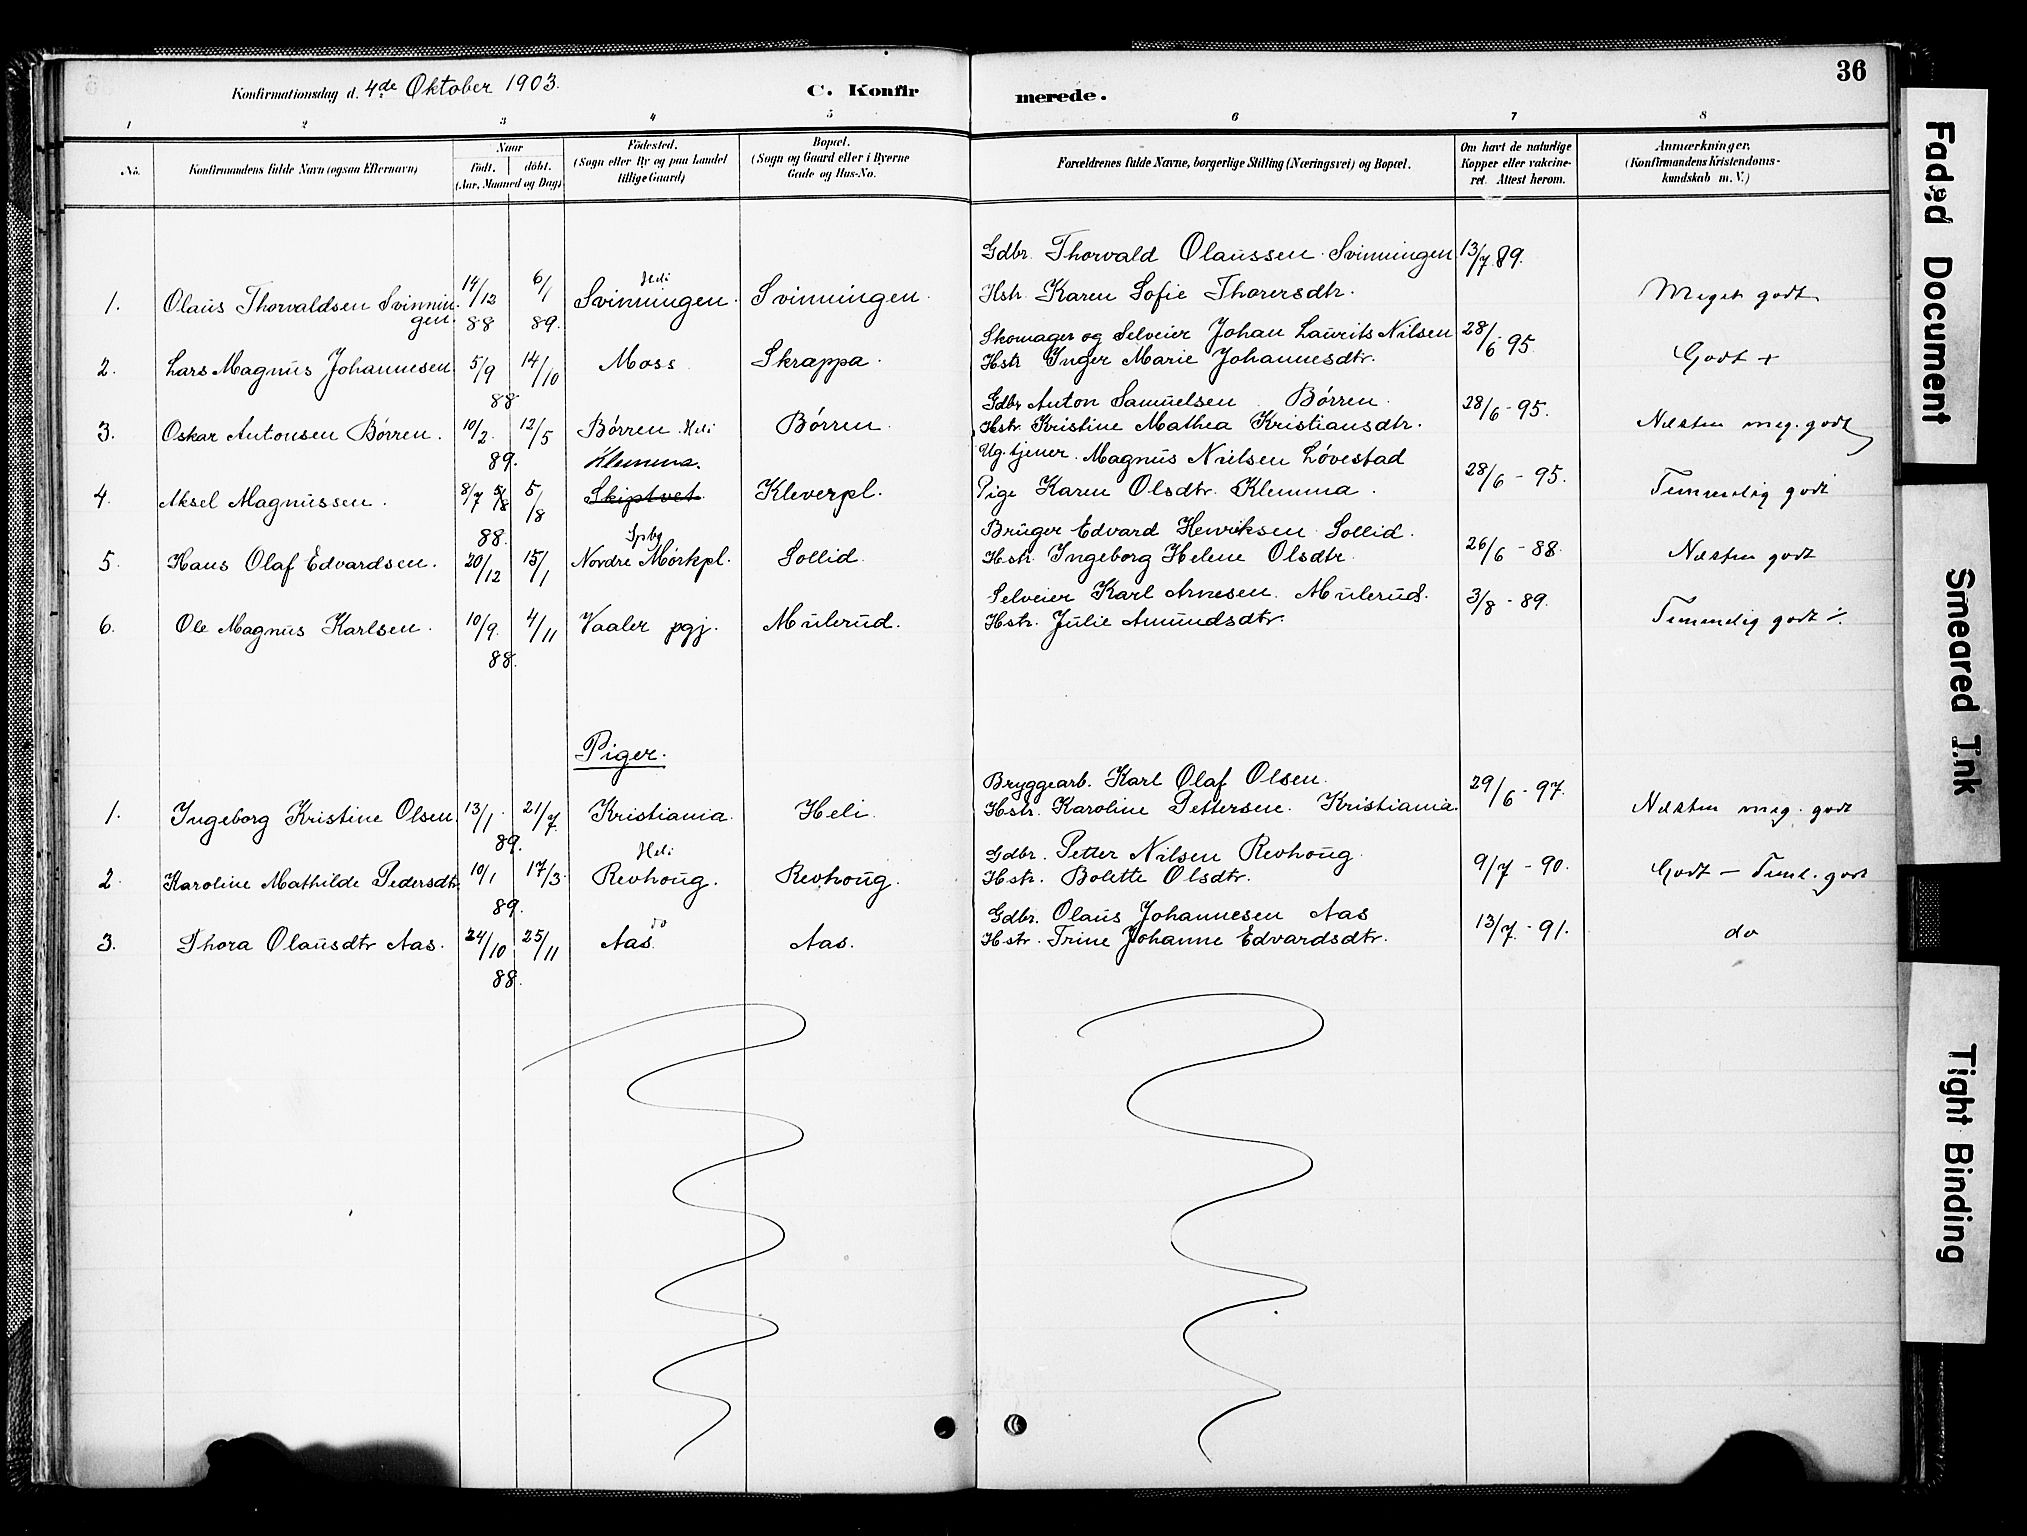 36
Konfirmationsdag d. 4de Oktober 1903.
C. Konfirmerede.
1 2 3 4 5 6 7 8
No.
Konfirmandens fulde Navn (ogsaa Efternavn)
Naar
Født. døbt.
(Aar, Maaned og Dag)
Fødested.
(Sogn eller By og paa Landet
tillige Gaard)
Bopæl.
(Sogn og Gaard eller i Byerne
Gade og Hus-No.
Forældrenes fulde Navne, borgerlige Stilling (Næringsvei) og Bopæl.
Om havt de naturlige
Kopper eller vakcine-
ret. Attest herom.
Anmærkninger.
(Konfirmandens Kristendoms-
kundskab m. V.)
1. Olaus Thorvaldsen Svinnin-
gen. 14/12 88 6/1 89. Heli Svinningen. Svinningen. Gdbr. Thorvald Olaussen Svinningen 13/7 89.
Hstr. Karen Sofie Thorersdtr. Meget godt
2. Lars Magnus Johannesen 5/9 88 14/10 Moss Skrappa. Skomager og Selveier Johan Laurits Nilsen 28/6 95.
Hstr Inger Marie Johannesdtr. Godt +
3. Oskar Antonsen Børren. 10/2. 89. 12/5 Børren Heli Børren Gdbr Anton Samuelsen Børren. 28/6 - 95.
Hstr. Kristine Mathea Kristiansdtr. Næsten meg. godt
4. Aksel Magnussen. 8/7 5/8 88. 5/8 Klemma. Skiptvet Kleverpl. Ug. tjener. Magnus Nielsen Løvestad 28/6 - 95.
Pige Karen Olsdtr. Klemma. Temmelig godt
5. Hans Olaf Edvardsen. 20/12 15/1 Spbg Nordre Mörkpl. Sollid. Bruger Edvard Henriksen Sollid. 26/6 - 88.
Hstr. Ingeborg Helene Olsdtr. Næsten godt
6. Ole Magnus Karlsen. 10/9. 88. 4/11 Vaaler pgj. Mulerud. Selveier Karl Arnesen. Mulerud. 3/8 - 89.
Hstr. Julie Amundsdtr. Temmelig godt ÷.
Piger.
1. Ingeborg Kristine Olsen. 13/1 89. 21/7 Kristiania. Heli. Bryggearb. Karl Olaf Olsen. 29/6 - 97.
Hstr. Karoline Pettersen. Kristiania. Næsten meg. godt
2. Karoline Mathilde Pedersdtr 10/1 89. 17/3. Heli Revhoug. Revhoug. Gdbr. Petter Nilsen Revhoug. 9/7 - 90.
Hstr. Bolette Olsdtr. Godt - Teml. godt
3. Thora Olausdtr Aas. 24/10 88. 25/11 do Aas. Aas. Gdbr. Olaus Johannesen Aas 13/7 - 91.
Hstr. Trine Johanne Edvardsdtr. do
Faded Document
Smeared Ink
Tight Binding